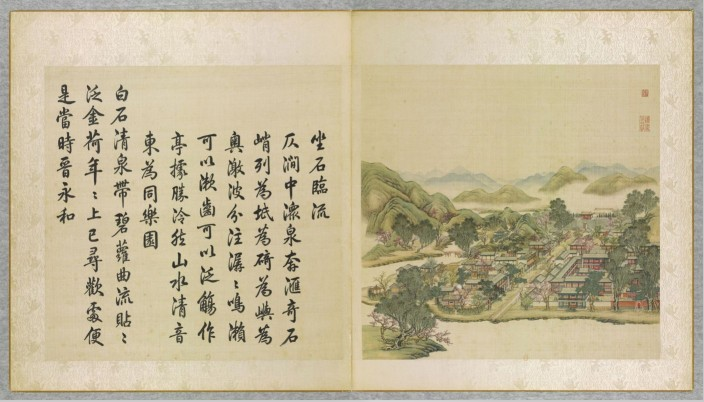 坐石臨流
仄澗中瀠泉奔匯奇石
峭列為坻為碕為嶼為
奧激波分注潺〻鳴瀨
可以漱齒可以泛觴作
亭據勝泠然山水清音
東為同樂園
白石清泉帶碧蘿曲流貼〻
泛金荷年〻上巳尋歡處便
是當時晉永和